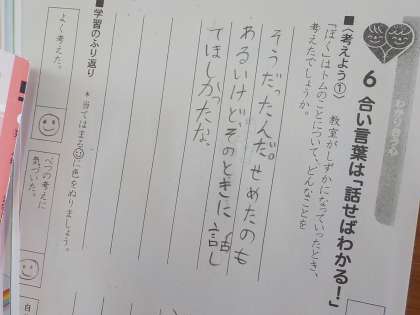 わかり合う心
6 合い言葉は「話せばわかる！」
■〈考えよう①〉
教室がしずかになっていったとき、
「ぼく」はトムのことについて、どんなことを
考えたでしょうか。
そうだったんだ。せめたのも
わるいけど、そのときに話し
てほしかったな。
■学習のふり返り
＊当てはまる☺に色をぬりましょう。
よく考えた。
べつの考えに
気づいた。
自